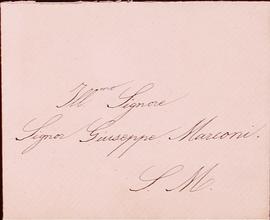 Ill.mo Signore
Signor Giuseppe Marconi.
S. M.